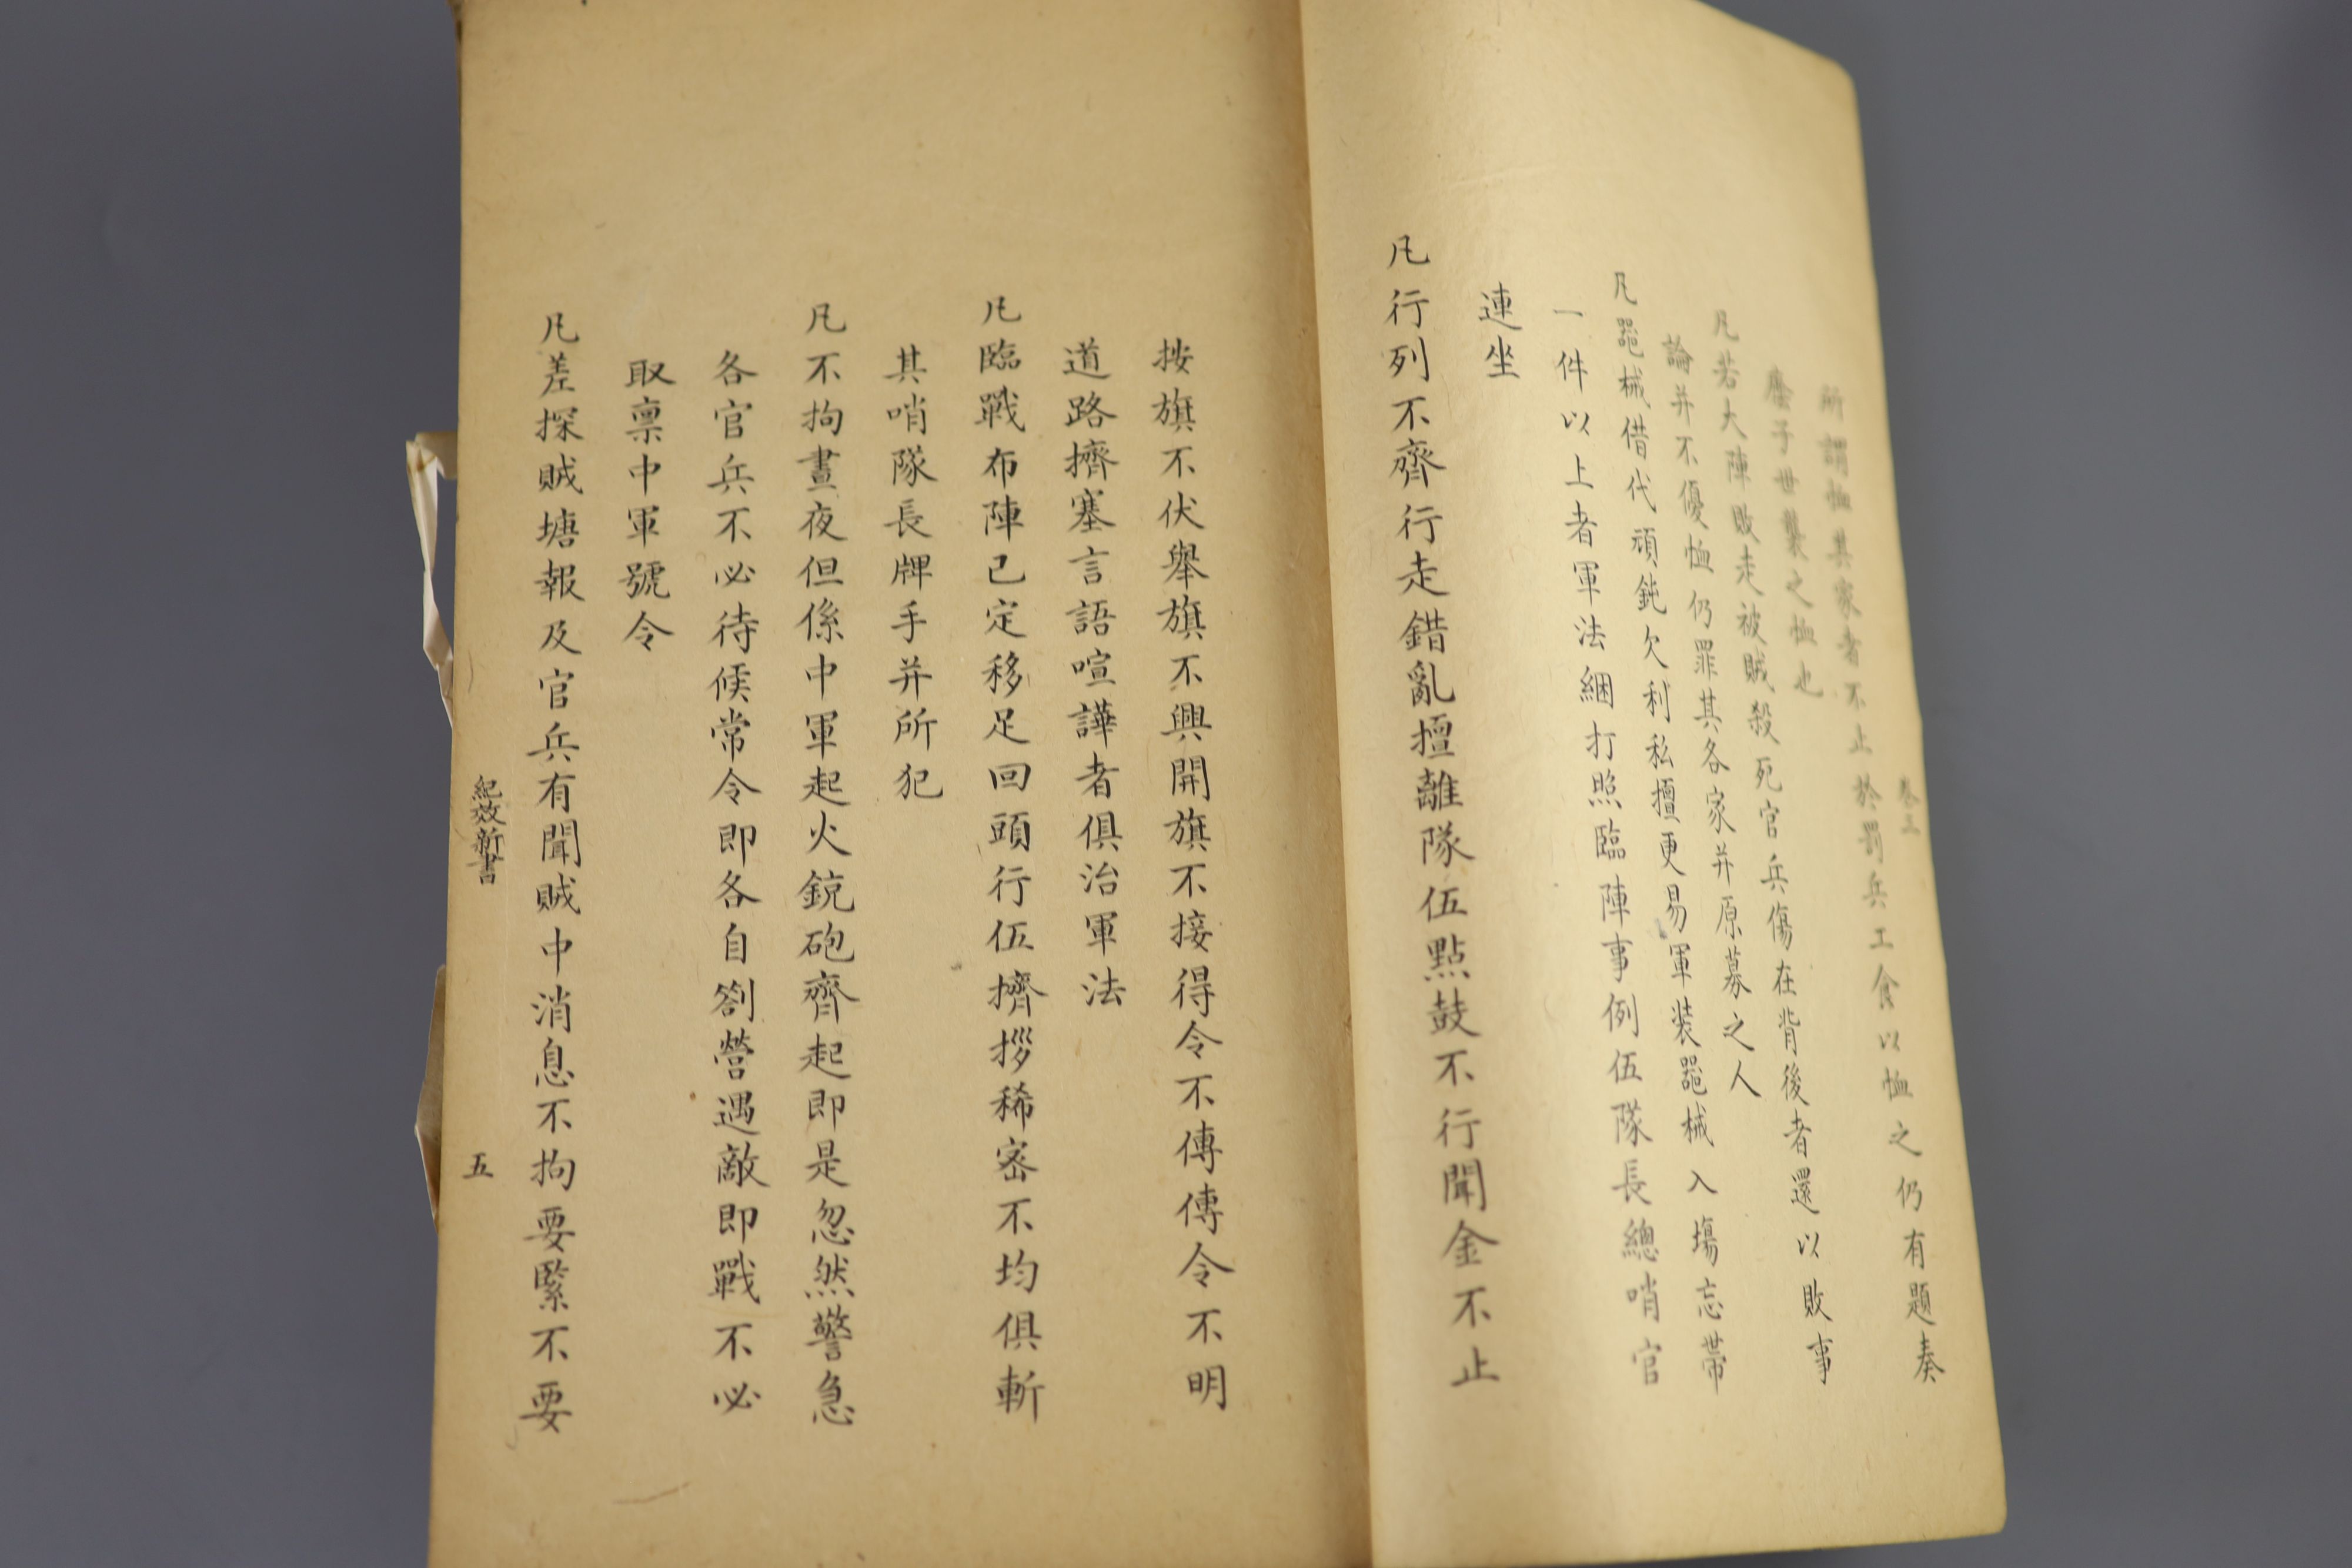 卷三
所謂恤其家者不止於罰兵工食以恤之仍有題奏
廕子世襲之恤也
凡若大陣敗走被賊殺死官兵傷在背後者還以敗事
論并不優恤仍罪其各家并原募之人
凡噐械借代頑鈍欠利私擅更易軍裝噐械入場忘帶
一件以上者軍法綑打照臨陣事例伍隊長總哨官
連坐
凡行列不齊行走錯亂擅離隊伍點鼓不行聞金不止
按旗不伏舉旗不興開旗不接得令不傳傳令不明
道路擠塞言語喧譁者俱治軍法
凡臨戰布陣已定移足回頭行伍擠拶稀密不均俱斬
其哨隊長牌手并所犯
凡不拘晝夜但係中軍起火銃砲齊起即是忽然警急
各官兵不必待候常令即各自劄營遇敵即戰不必
取禀中軍號令
凡差探賊塘報及官兵有聞賊中消息不拘要緊不要
紀效新書
五